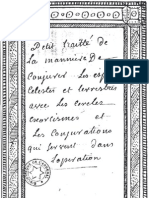 Petit traitté de
la manniere De
Conjurer les esp
Celestes et terrestres
avec les Cercles
exorcismes et
Les Conjurations
qui servent dans
l'operation